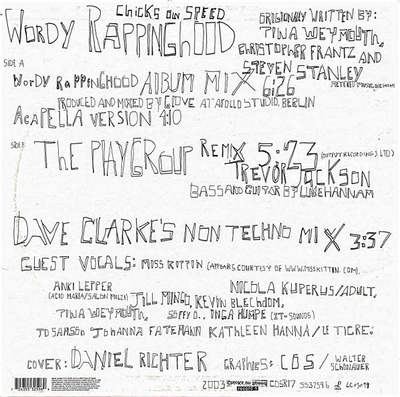 CHICKS ON SPEED
WORDY RAPPINGHOOD
ORIGIONLLY WRITTEN BY:
TINA WEYMOUTH,
CHRISTOPHER FRANTZ AND
STEVEN STANLEY
SIDE A
WORDY RAPPINGHOOD ALBUM MIX 6:26
PRODUCED AND MIXED BY GLOVE AT APOLLO STUDIO, BERLIN
ACAPELLA VERSION 4:10
SIDE B
THE PLAYGROUP REMIX 5:23
TREVOR JACKSON
BASS AND GUITAR BY LUKE HANNAM
DAVE CLARKE'S NON TECHNO MIX 3:37
GUEST VOCALS: MISS KITTIN (APPEARS COURTESY OF WWW.MISSKITTIN.COM).
ANKI LEPPER
(ACID MARIA/SALON MILZ)
NICOLA KUPERUS/ADULT,
JILL MINGO, KEVIN BLECHDOM,
TINA WEYMOUTH, SOFFY O., INGA HUMPE (2T-SOUNDS)
JD SAMSON JOHANNA FATEMANN KATHLEEN HANNA/LE TIGRE.
COVER: DANIEL RICHTER GRAPHICS: COS / WALTER
SCHÖNAUER
2003 COSR17 5537596